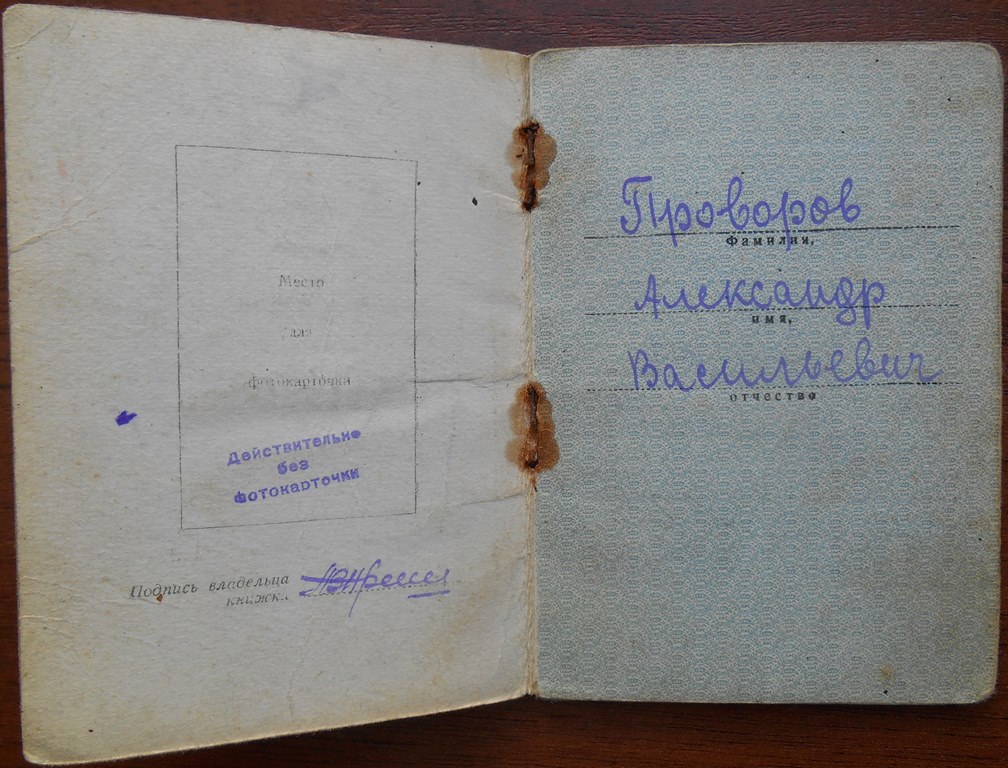 Место
для
фотокарточка
Действительно
без
фотокарточки
Подпись владельца
книжки
Проворов
Фамилия,
Александр
имя,
Васильевич
отчество